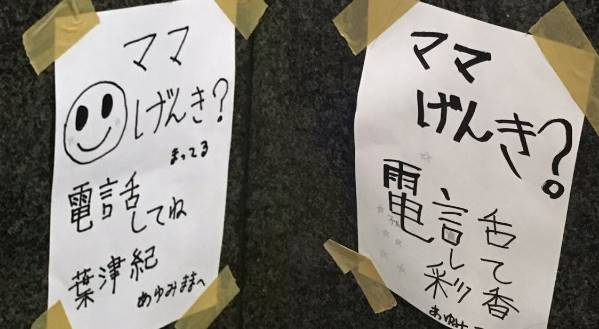 ママ
げんき?
まってる
電話してね
葉津紀
あゆみままへ
ママ
げんき?
電話
して
彩香